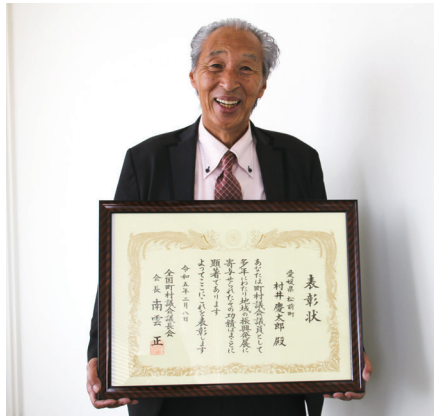 表彰状
愛媛県 松前町
村井慶太郎 殿
あなたは町村議会議員として
多年にわたり地域の振興発展に
寄与せられたその功績はまことに
顕著であります
よってここにこれを表彰します
令和五年二月八日
全国町村議会議長会
会長 南雲 正